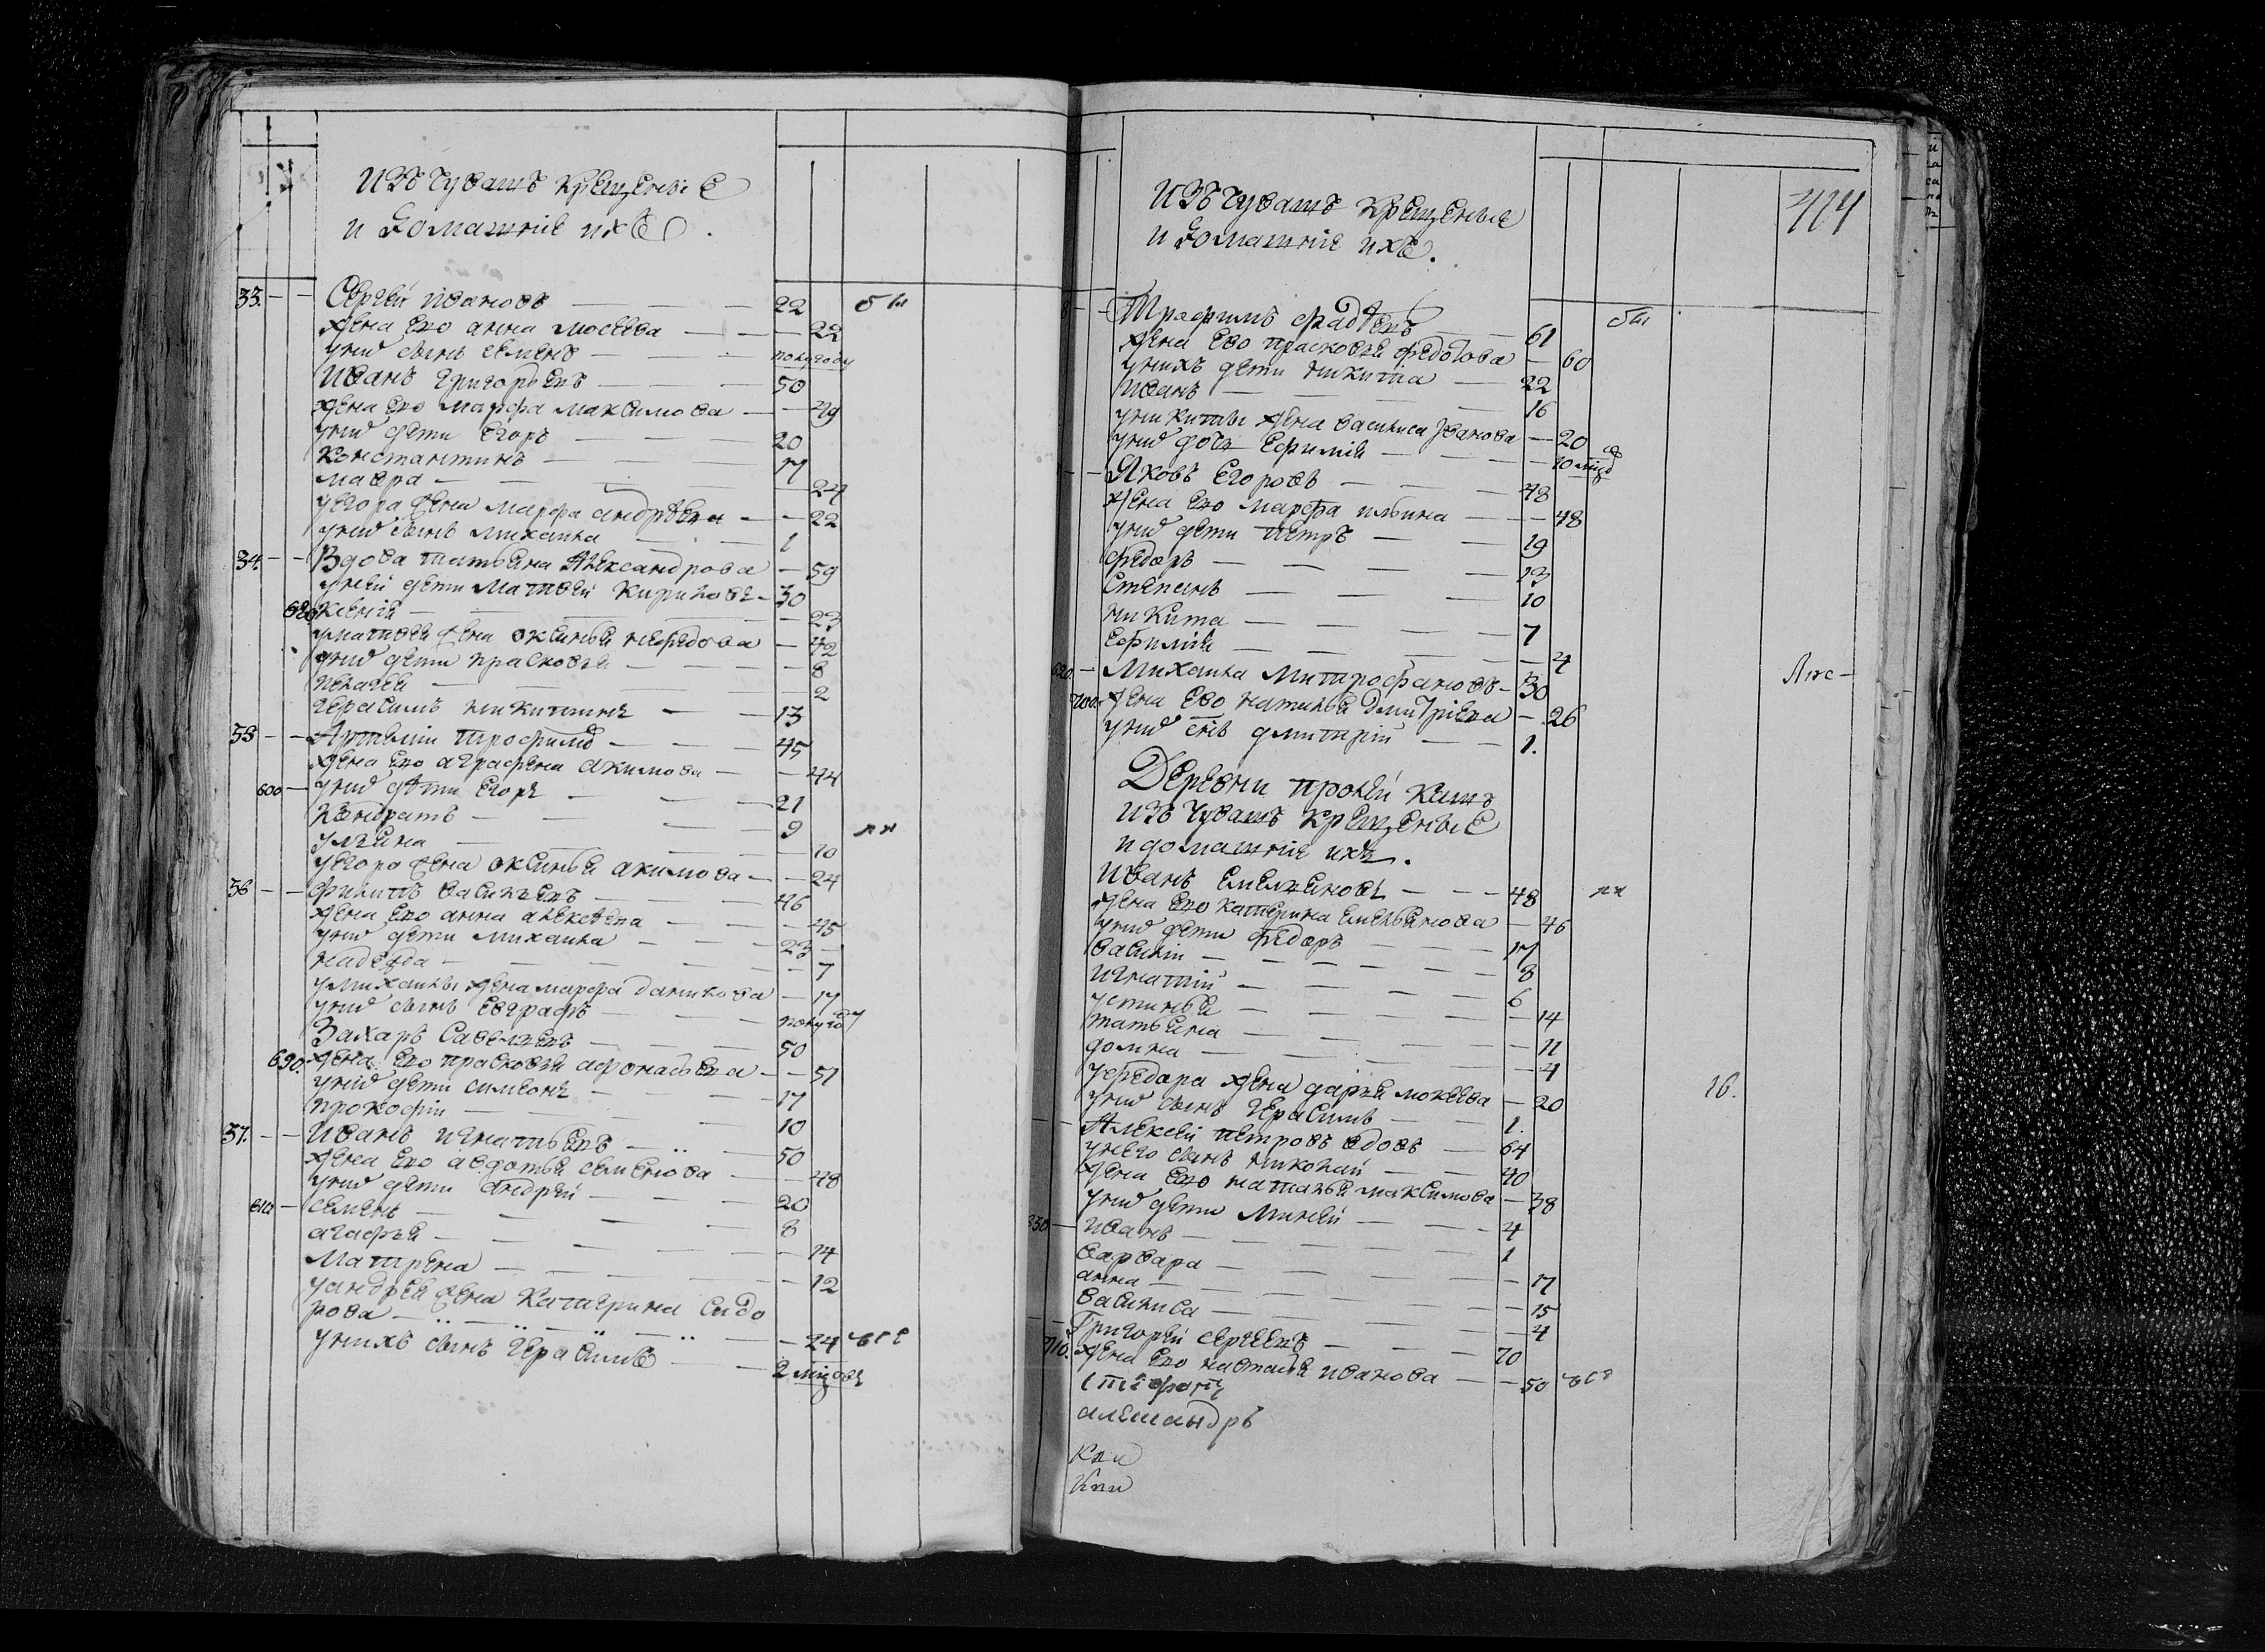 изъ Чувашъ крещеные
и домашніе ихъ.
33. Сергей Ивановъ 22
жена ево анна мосеева 22
у нихъ сынъ семенъ полугоду
Иванъ григорьевъ 50
жена ево марфа максимова 49
у нихъ дети егоръ 20
константинъ 17
мавра 24
у егора жена марфа андрѣева 22
у нихъ сынъ михаила 1
34. Вдова татьяна Александрова 59
у ней дети матвей кириловъ 30
ксенія 23
у матвея жена оксинья нефедова 42
у нихъ дети прасковья 8
пелагея 2
герасимъ никитинъ 13
Артемій трофимовъ 45
жена ево аграфена акимова 44
600 у нихъ дѣти егоръ 21
кондратъ 9
ульяна 10
у егора жена оксинья акимова 24
36 филипъ васильевъ 46
жена ево анна алексѣева 45
у нихъ дети михаила 23
надежда 7
у михаилы жена марфа данилова 17
у нихъ сынъ евграфъ полугоду
Захаръ Савельевъ 50
690. жена ево прасковья афонасьева 51
у нихъ дети симеонъ 17
прокофій 10
37. Иванъ игнатьевъ 50
жена ево авдотья семенова 48
у нихъ дети андрей 20
610 семенъ 8
агафья 14
Матрена 12
у андрея жена Катерина Сидо
рова 24
у нихъ сынъ герасимъ 2 мцовъ
414
изъ Чувашъ крещеные
и домашніе ихъ.
Трафимъ фадѣевъ 61
жена ево прасковья федотова 60
у нихъ дети никита 22
иванъ 16
у никиты жена василиса Иванова 20
у нихъ дочь ефимія 10 мцовъ
Яковъ Егоровъ 48
жена ево марфа ильина 48
у нихъ дети петръ 19
федоръ 13
степанъ 10
никита 7
ефимія 4
620. Михаила Митрофановъ 30
700. жена ево наталья дмитріева 26
у нихъ снъ дмитрій 1.
Деревни пролей каши
изъ Чувашъ крещеные
и домашніе ихъ.
Иванъ емельяновъ 48
жена ево катерина емельянова 46
у нихъ дети федоръ 17
василій 8
игнатій 6
устинья 14
татьяна 11
домна 4
у федора жена дарья мокеева 20
16.
у нихъ сынъ герасимъ 1.
Алексей петровъ вдовъ 64
у нево сынъ николай 40
жена ево наталья максимова 38
у нихъ дети михей 4
иванъ 1
варвара 17
анна 15
василиса 4
Григорей сергеевъ 70
710. жена ево настасья иванова 50
александръ